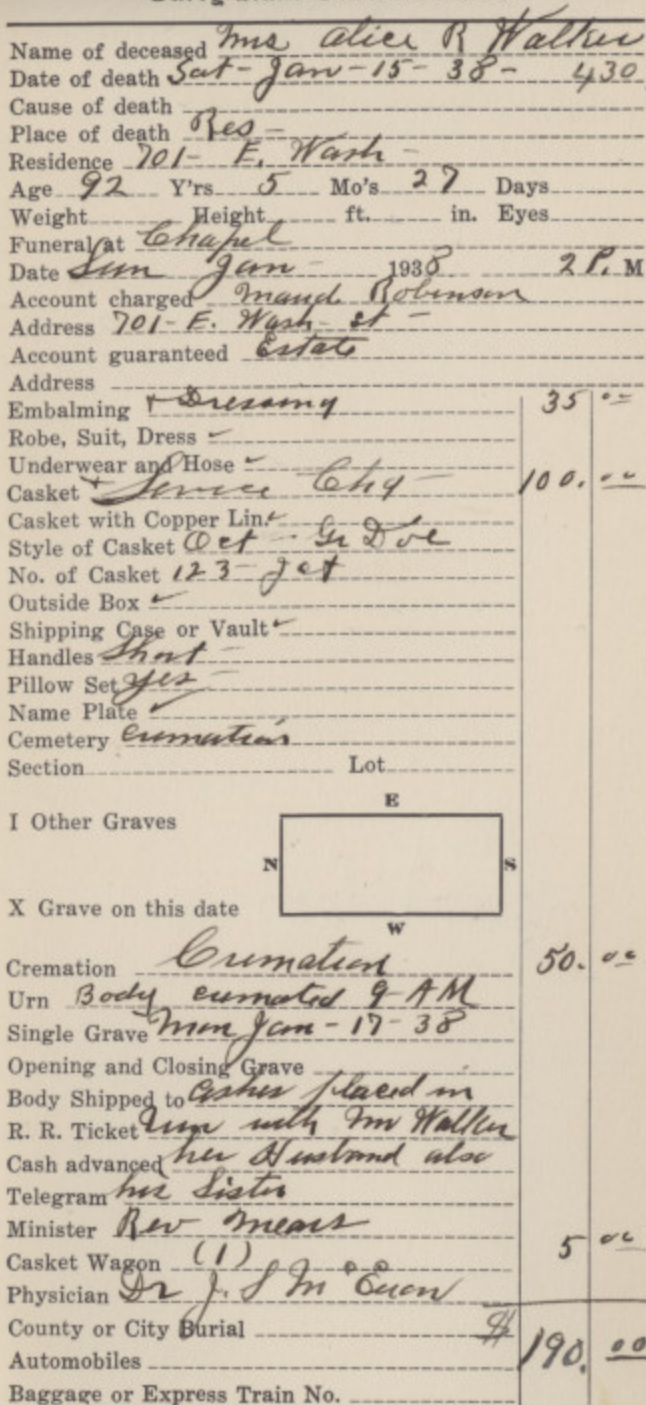 Name of deceased Mrs Alice R Walker
Date of death Sat - Jan - 15 - 38 - 430
Cause of death
Place of death Res -
Residence 701 - E. Wash -
Age 92 Y'rs 5 Mo's 27 Days
Weight Height ft. in. Eyes
Funeral at Chapel
Date Sun Jan - 1938 2 P. M
Account charged Maud Robinson
Address 701 - E. Wash - st -
Account guaranteed Estate
Address
Embalming + Dressing 35 00
Robe, Suit, Dress ✓
Underwear and Hose ✓
Casket + Service Chg - 100. 00
Casket with Copper Lin. ✓
Style of Casket Oct -
No. of Casket 123 - Jet
Outside Box ✓
Shipping Case or Vault ✓
Handles Short -
Pillow Set yes -
Name Plate ✓
Cemetery Cremation
Section Lot
E
I Other Graves
N S
X Grave on this date
W
Cremation Cremation 50. 00
Urn Body cremated 9 AM
Single Grave Mon Jan - 17 - 38
Opening and Closing Grave
Body Shipped to Ashes placed in
R. R. Ticket Urn with Mr Walker
Cash advanced her Husband also
Telegram his Sister
Minister Rev Mears 5 00
Casket Wagon (1)
Physician Dr J. S McEuen
County or City Burial $
190. 00
Automobiles
Baggage or Express Train No.